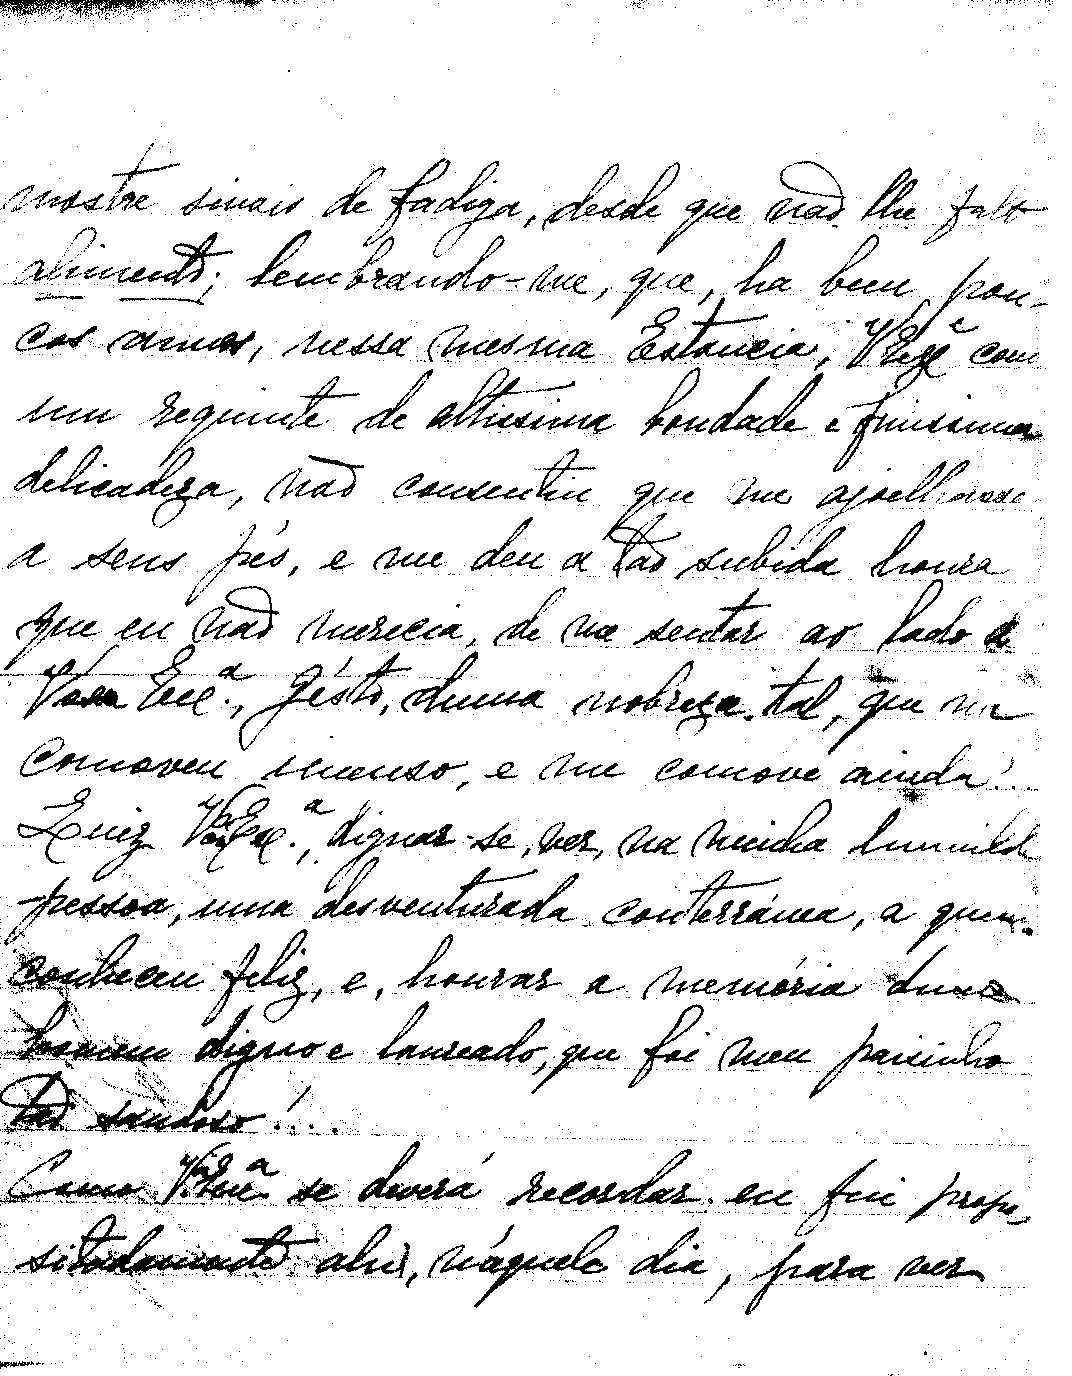 mostre sinais de fadiga, desde que não lhe falte
alimento; lembrando-me, que, ha bem pou-
cos anos, nessa mesma Estancia, V. Exª com
um requinte de altissima bondade e finissima
delicadeza, não consentiu que me ajoelhasse
a seus pés, e me deu a tão subida honra
que eu não merecia, de me sentar ao lado de
Vossa Excª., Gésto, duma nobreza tal, que me
comoveu imenso, e me comove ainda!...
Quiz V. Exª., dignar-se, ver, na minha humilde
pessoa, uma desventurada conterránea, a quem
conheceu feliz, e, honrar a memória dum
homem digno e laureado, que foi meu paisinho
tão saudoso!...
Como V. Exª se deverá recordar, eu fui propo-
sitadamente ahi, náquele dia, para ver